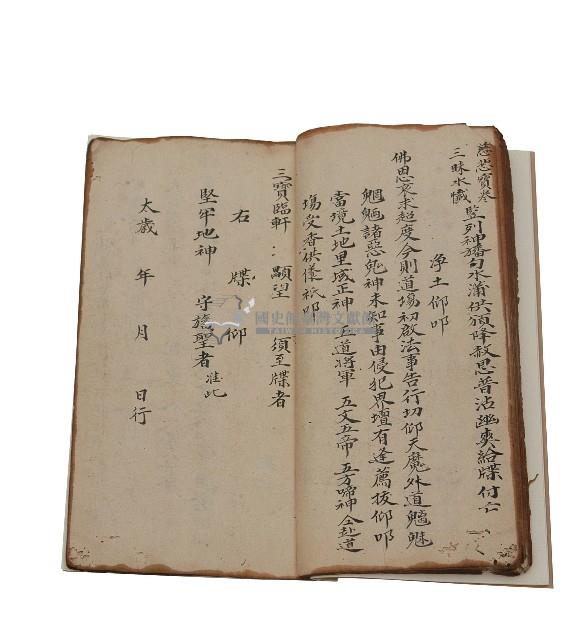 慈悲寶卷
三昧水懺
豎列神旛勺水滿供頒降赦恩普沾幽爽給牒付亡
淨土仰叩
佛恩哀求超度今則道場初啟法事告行切仰天魔外道魑魅
魍魎諸惡鬼神未知事由侵犯界壇有逢薦拔仰叩
當境土地里域正神 五道將軍 五文五帝 五方啼神 仝赴道
場受香供儀祇叩
三寶臨軒 顒望 須至牒者
右 牒 仰
堅牢地神 守旛聖者 准此
太歲 年 月 日行
國史館臺灣文獻館
TAIWAN HISTORICA